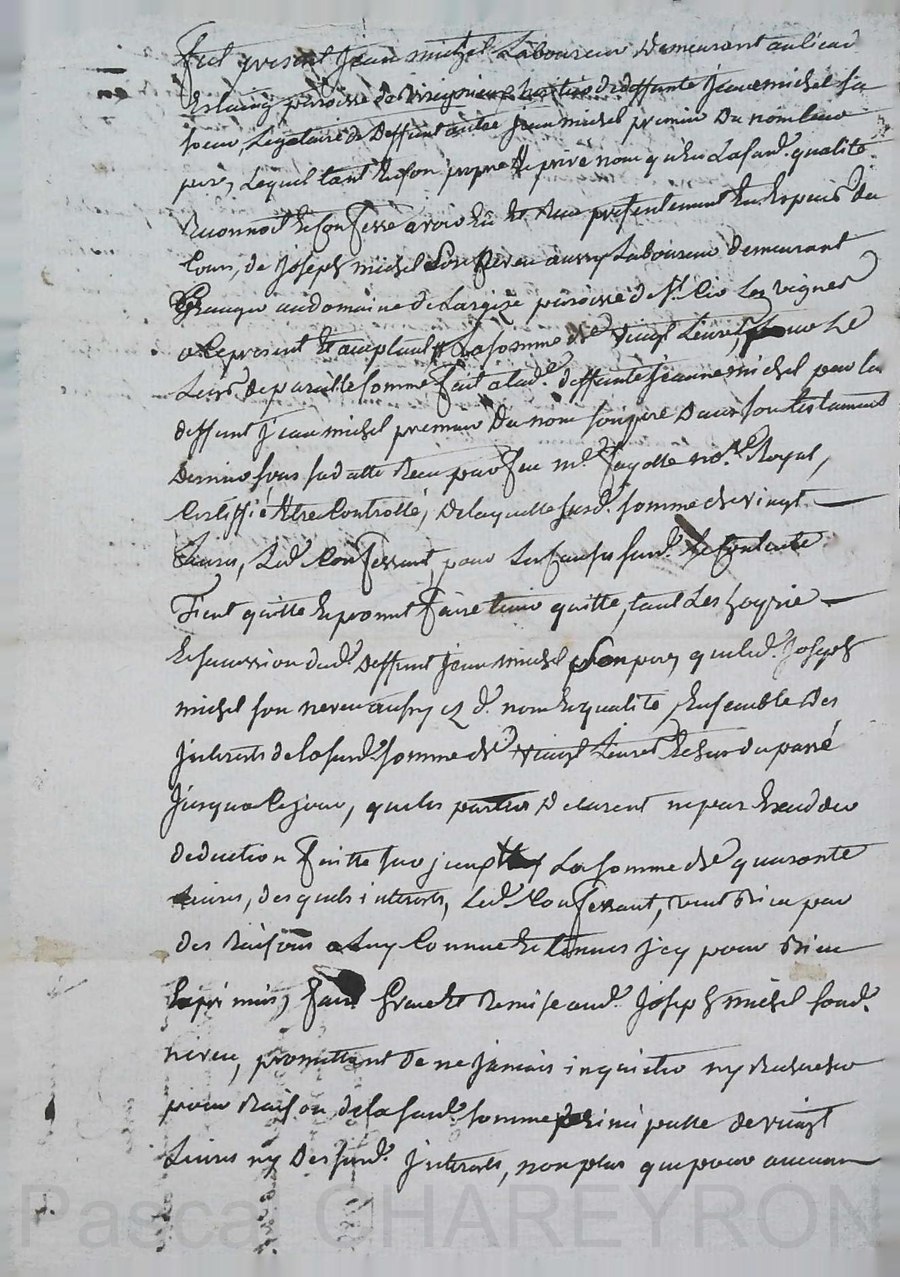 Fut present Jean michel Laboureur Demeurant au lieu
paroisse de heritier de deffunte Jeanne michel sa
soeur, Legataire de Deffunt autre Jean michel premier Du nom leur
pere, Lequel tant En son propre & prive nom qu'En La susd.e qualité
Reconnoit & Confesse avoir Eü & Reçu presentement En Especes du
Cours, de Joseph michel son Neveu aussy Laboureur demeurant
Granger au domaine de Largize paroisse de St. Les vignes
a Ce present & aceptant La somme de vingt Livres, pour Le
Legs de pareille somme fait a lad.e deffunte Jeanne michel par le
deffunt Jean michel premier Du nom son pere Dans son testament
Dernier sous sad atte Recu par feu me. fayolle not.re Royal,
Certiffié Etre Controllé, De laquelle susd.e somme de vingt
Livres, Led. Confessant, pour Les Causes susd. se Contente
Tient quitte & promet faire tenir quitte, tant Les hoyrie
& sucession dud. Deffunt Jean michel son pere, que led. Joseph
michel son neveu aussy ez d. nom & qualité, Ensemble Des
Interests de la susd.e somme de vingt Livres & du passé
Jusqua Ce jour, que les parties Declarent ne pas Exceder
deduction faitte sur jceux La somme de quarante
Livres, des quels interests, Led. Confessant, veut bien par
des Raisons a Luy Connue & tenues jcy pour bien
Exprimés, faire Grace & Remise aud. Joseph michel sond.
neveu, promettant de ne Jamais inquieter ny Rechercher
pour Raison de la susd.e somme principalle de vingt
Livres ny Des susd. Jnterests, non plus que pour aucun
Pascal CHAREYRON